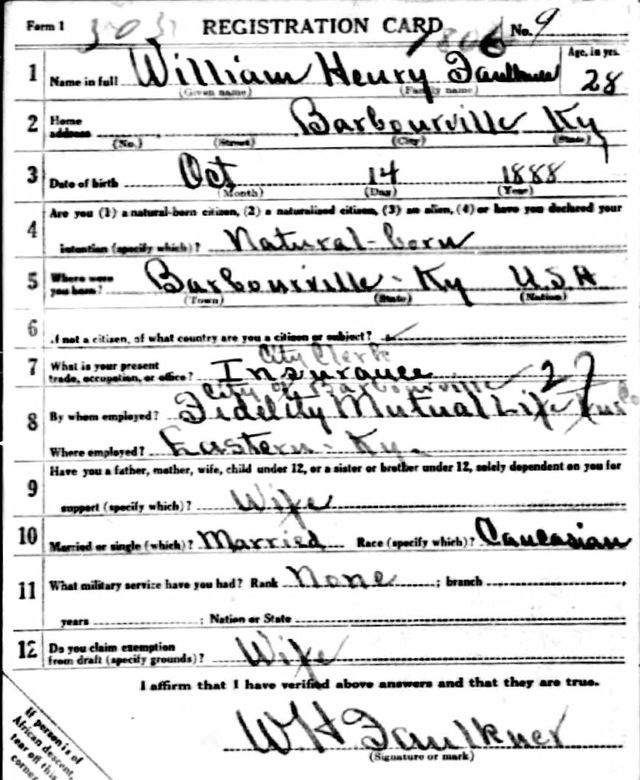 Form 1 REGISTRATION CARD No. 9
1 Name in full William Henry Faulkner Age, in yrs. 28
(Given name) (Family name)
2 Home address Barbourville Ky
(No.) (Street) (City) (State)
3 Date of birth Oct 14 1888
(Month) (Day) (Year)
4 Are you (1) a natural-born citizen, (2) a naturalized citizen, (3) an alien, (4) or have you declared your
intention (specify which)? Natural-born
5 Where were you born? Barbourville - Ky USA
(Town) (State) (Nation)
6 If not a citizen, of what country are you a citizen or subject?
City Clerk
7 What is your present trade, occupation, or office? Insurance 27
City of Barbourville
8 By whom employed? Fidelity Mutual Life Ins Co
Where employed? Eastern - Ky.
9 Have you a father, mother, wife, child under 12, or a sister or brother under 12, solely dependent on you for
support (specify which)? Wife
10 Married or single (which)? Married Race (specify which)? Caucasian
11 What military service have you had? Rank None ; branch ,
years ; Nation or State
12 Do you claim exemption from draft (specify grounds)? Wife
I affirm that I have verified above answers and that they are true.
W H Faulkner
(Signature or mark)
If person is of
African descent,
tear off this
corner